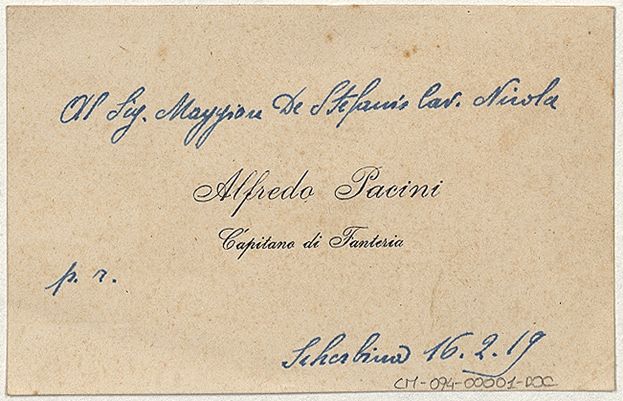 Al Sig. Maggiore De Stefanis Cav. Nicola
Alfredo Pacini
Capitano di Fanteria
p. r.
Scherbina 16.2.19
CM-094-00001-DOC